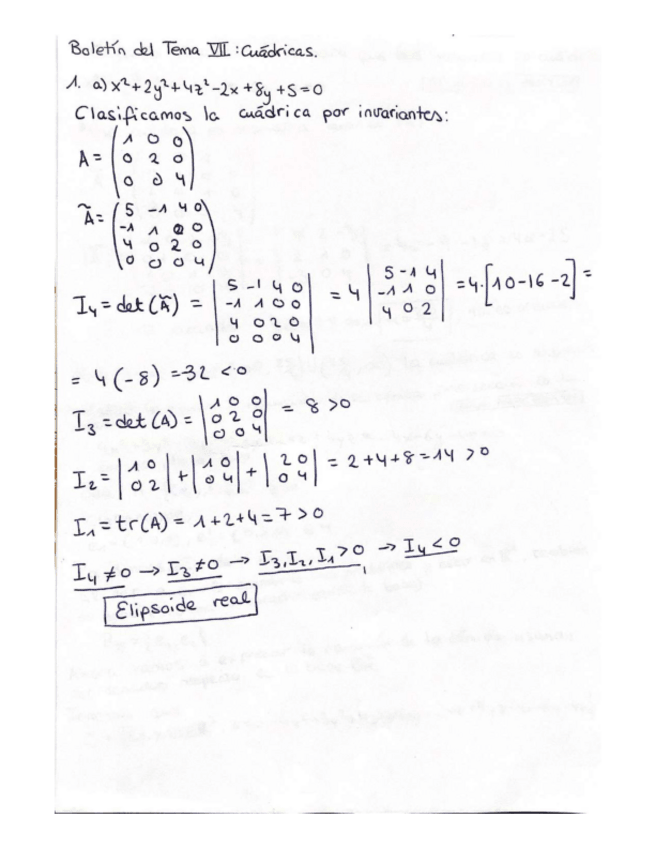 Boletín del Tema VII: Cuádricas.
1. a) x²+2y²+4z²-2x+8y+5=0
Clasificamos la cuádrica por invariantes:
A = (1 0 0
0 2 0
0 0 4)
Ã = (5 -1 4 0
-1 1 0 0
4 0 2 0
0 0 0 4)
I₄ = det(Ã) = |5 -1 4 0
-1 1 0 0
4 0 2 0
0 0 0 4| = 4 |5 -1 4
-1 1 0
4 0 2| = 4·[10-16-2] =
= 4(-8) = -32 < 0
I₃ = det(A) = |1 0 0
0 2 0
0 0 4| = 8 > 0
I₂ = |1 0
0 2| + |1 0
0 4| + |2 0
0 4| = 2+4+8 = 14 > 0
I₁ = tr(A) = 1+2+4 = 7 > 0
I₄ ≠ 0 → I₃ ≠ 0 → I₃, I₂, I₁ > 0 → I₄ < 0
Elipsoide real